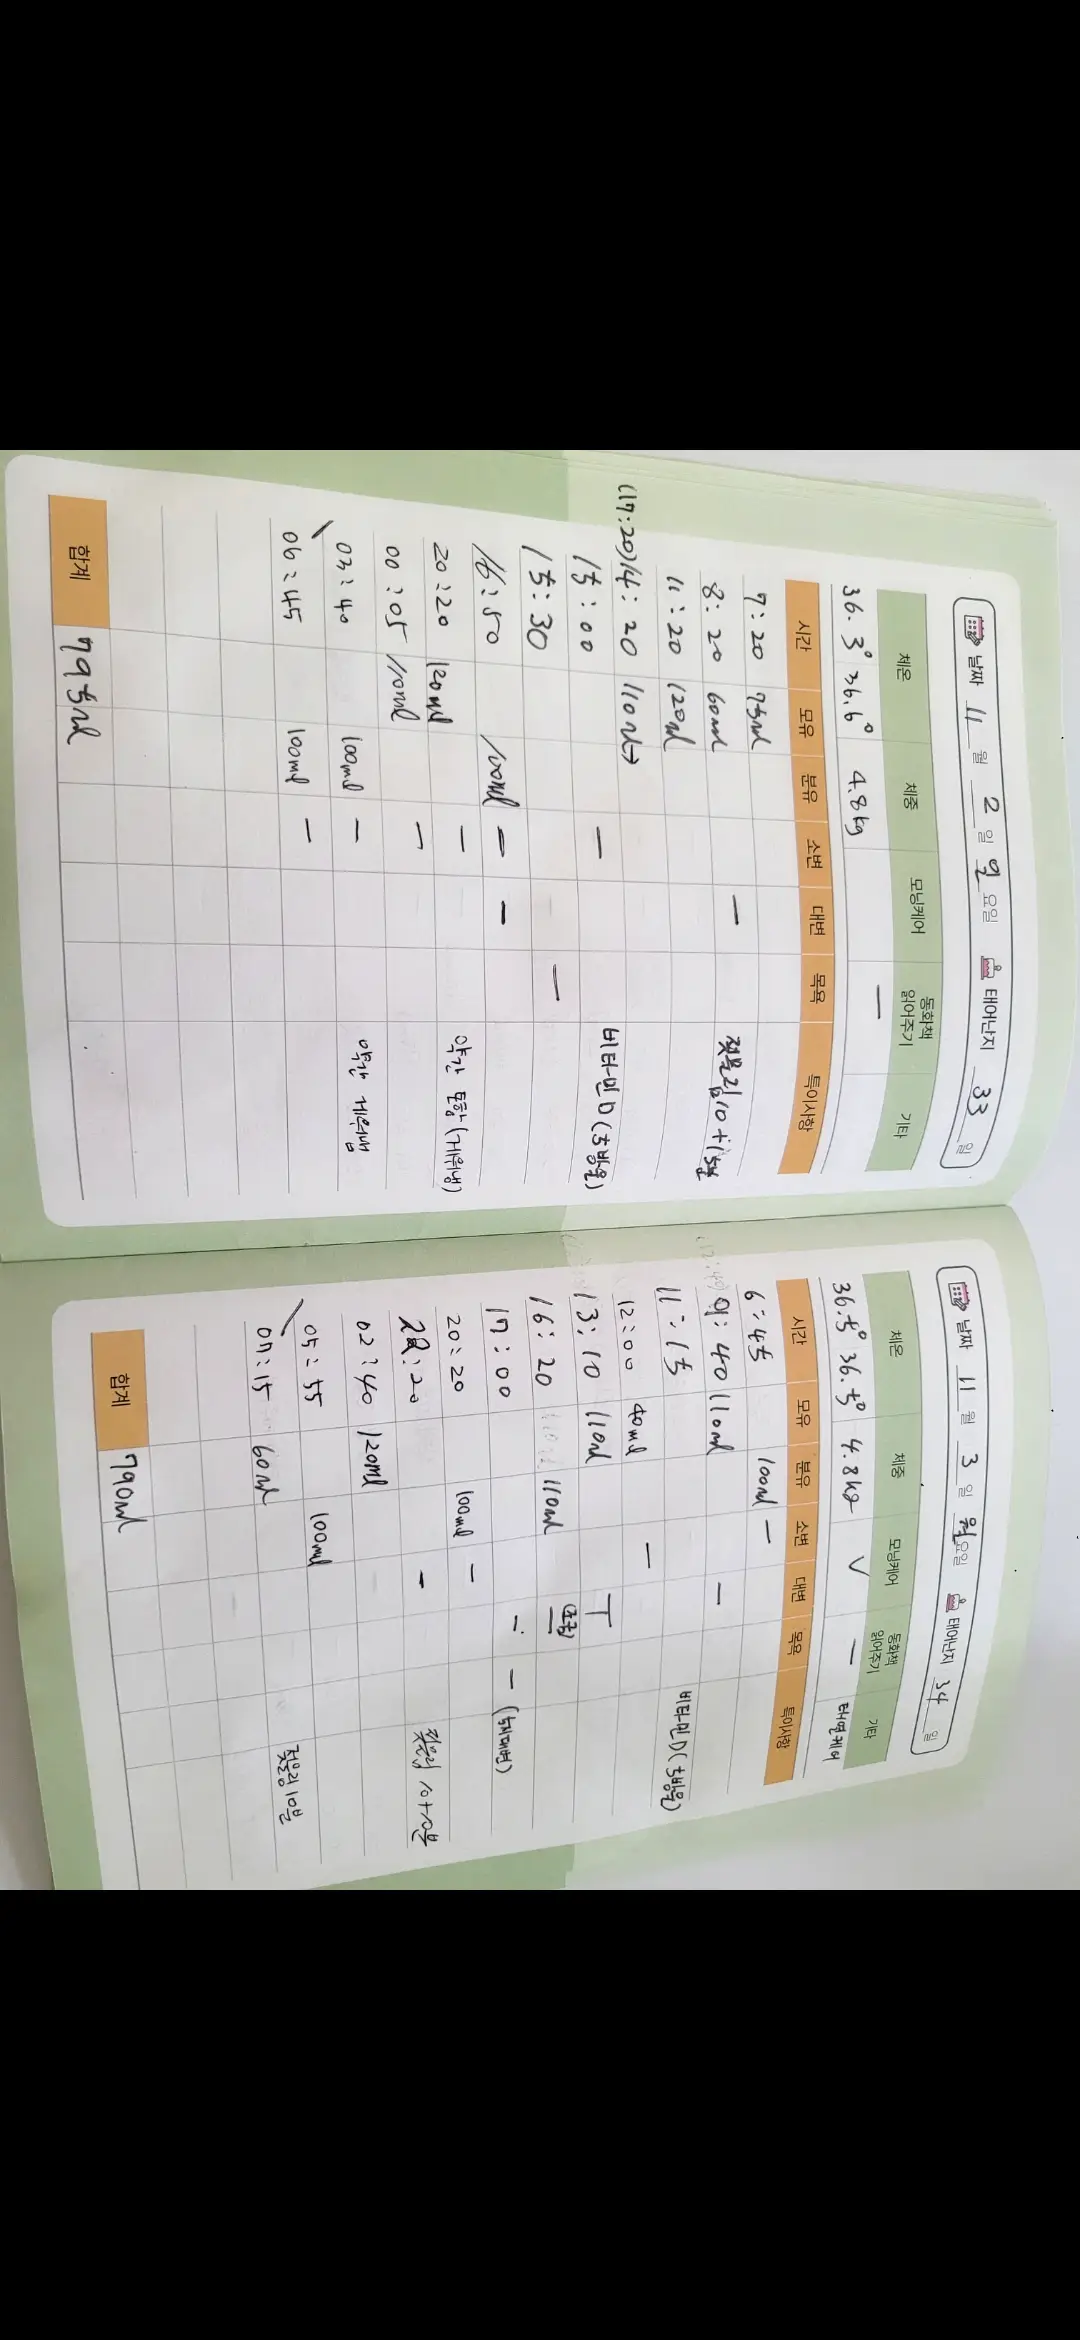 날짜 11 월 2 일 일 요일 태어난지 33 일
체온 체중 모닝케어 동화책 읽어주기 기타
36.3° 36.6° 4.8kg ㅡ
시간 모유 분유 소변 대변 목욕 특이사항
7:20 75ml
8:20 60ml ㅡ 젖물림 10+15분
11:20 120ml
(17:20) 14:20 110ml→
15:00 ㅡ 비타민D (3방울)
15:30 ㅡ
16:50 100ml ㅡ ㅡ
20:20 120ml ㅡ 약간 토함 (게워냄)
00:05 110ml ㅡ
03:40 100ml ㅡ 약간 게워냄
06:45 100ml ㅡ
합계 795ml
날짜 11 월 3 일 월 요일 태어난지 34 일
체온 체중 모닝케어 동화책 읽어주기 기타
36.5° 36.5° 4.8kg V ㅡ 태열케어
시간 모유 분유 소변 대변 목욕 특이사항
6:45 100ml ㅡ
(12:40) 9:40 110ml ㅡ
11:15 비타민D (3방울)
12:00 40ml ㅡ
13:10 110ml T
16:20 110ml (조금) ㅡ
17:00 ㅡ ㅡ
20:20 100ml ㅡ
:20 ㅡ 젖물림 10+10분
02:40 120ml
05:55 100ml
07:15 60ml 젖물림 10분
합계 790ml